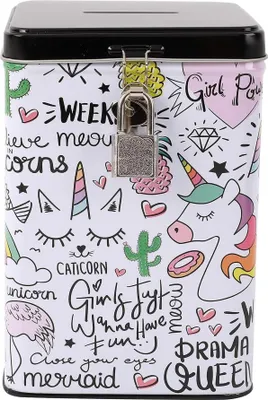 WEEK
Girl Po
ieve meow
IN
corns
CATICORN
unicorn
Girls Just
Wanna Have
Fun
meow
Close your eyes
mermaid
DRAMA
QUEEN